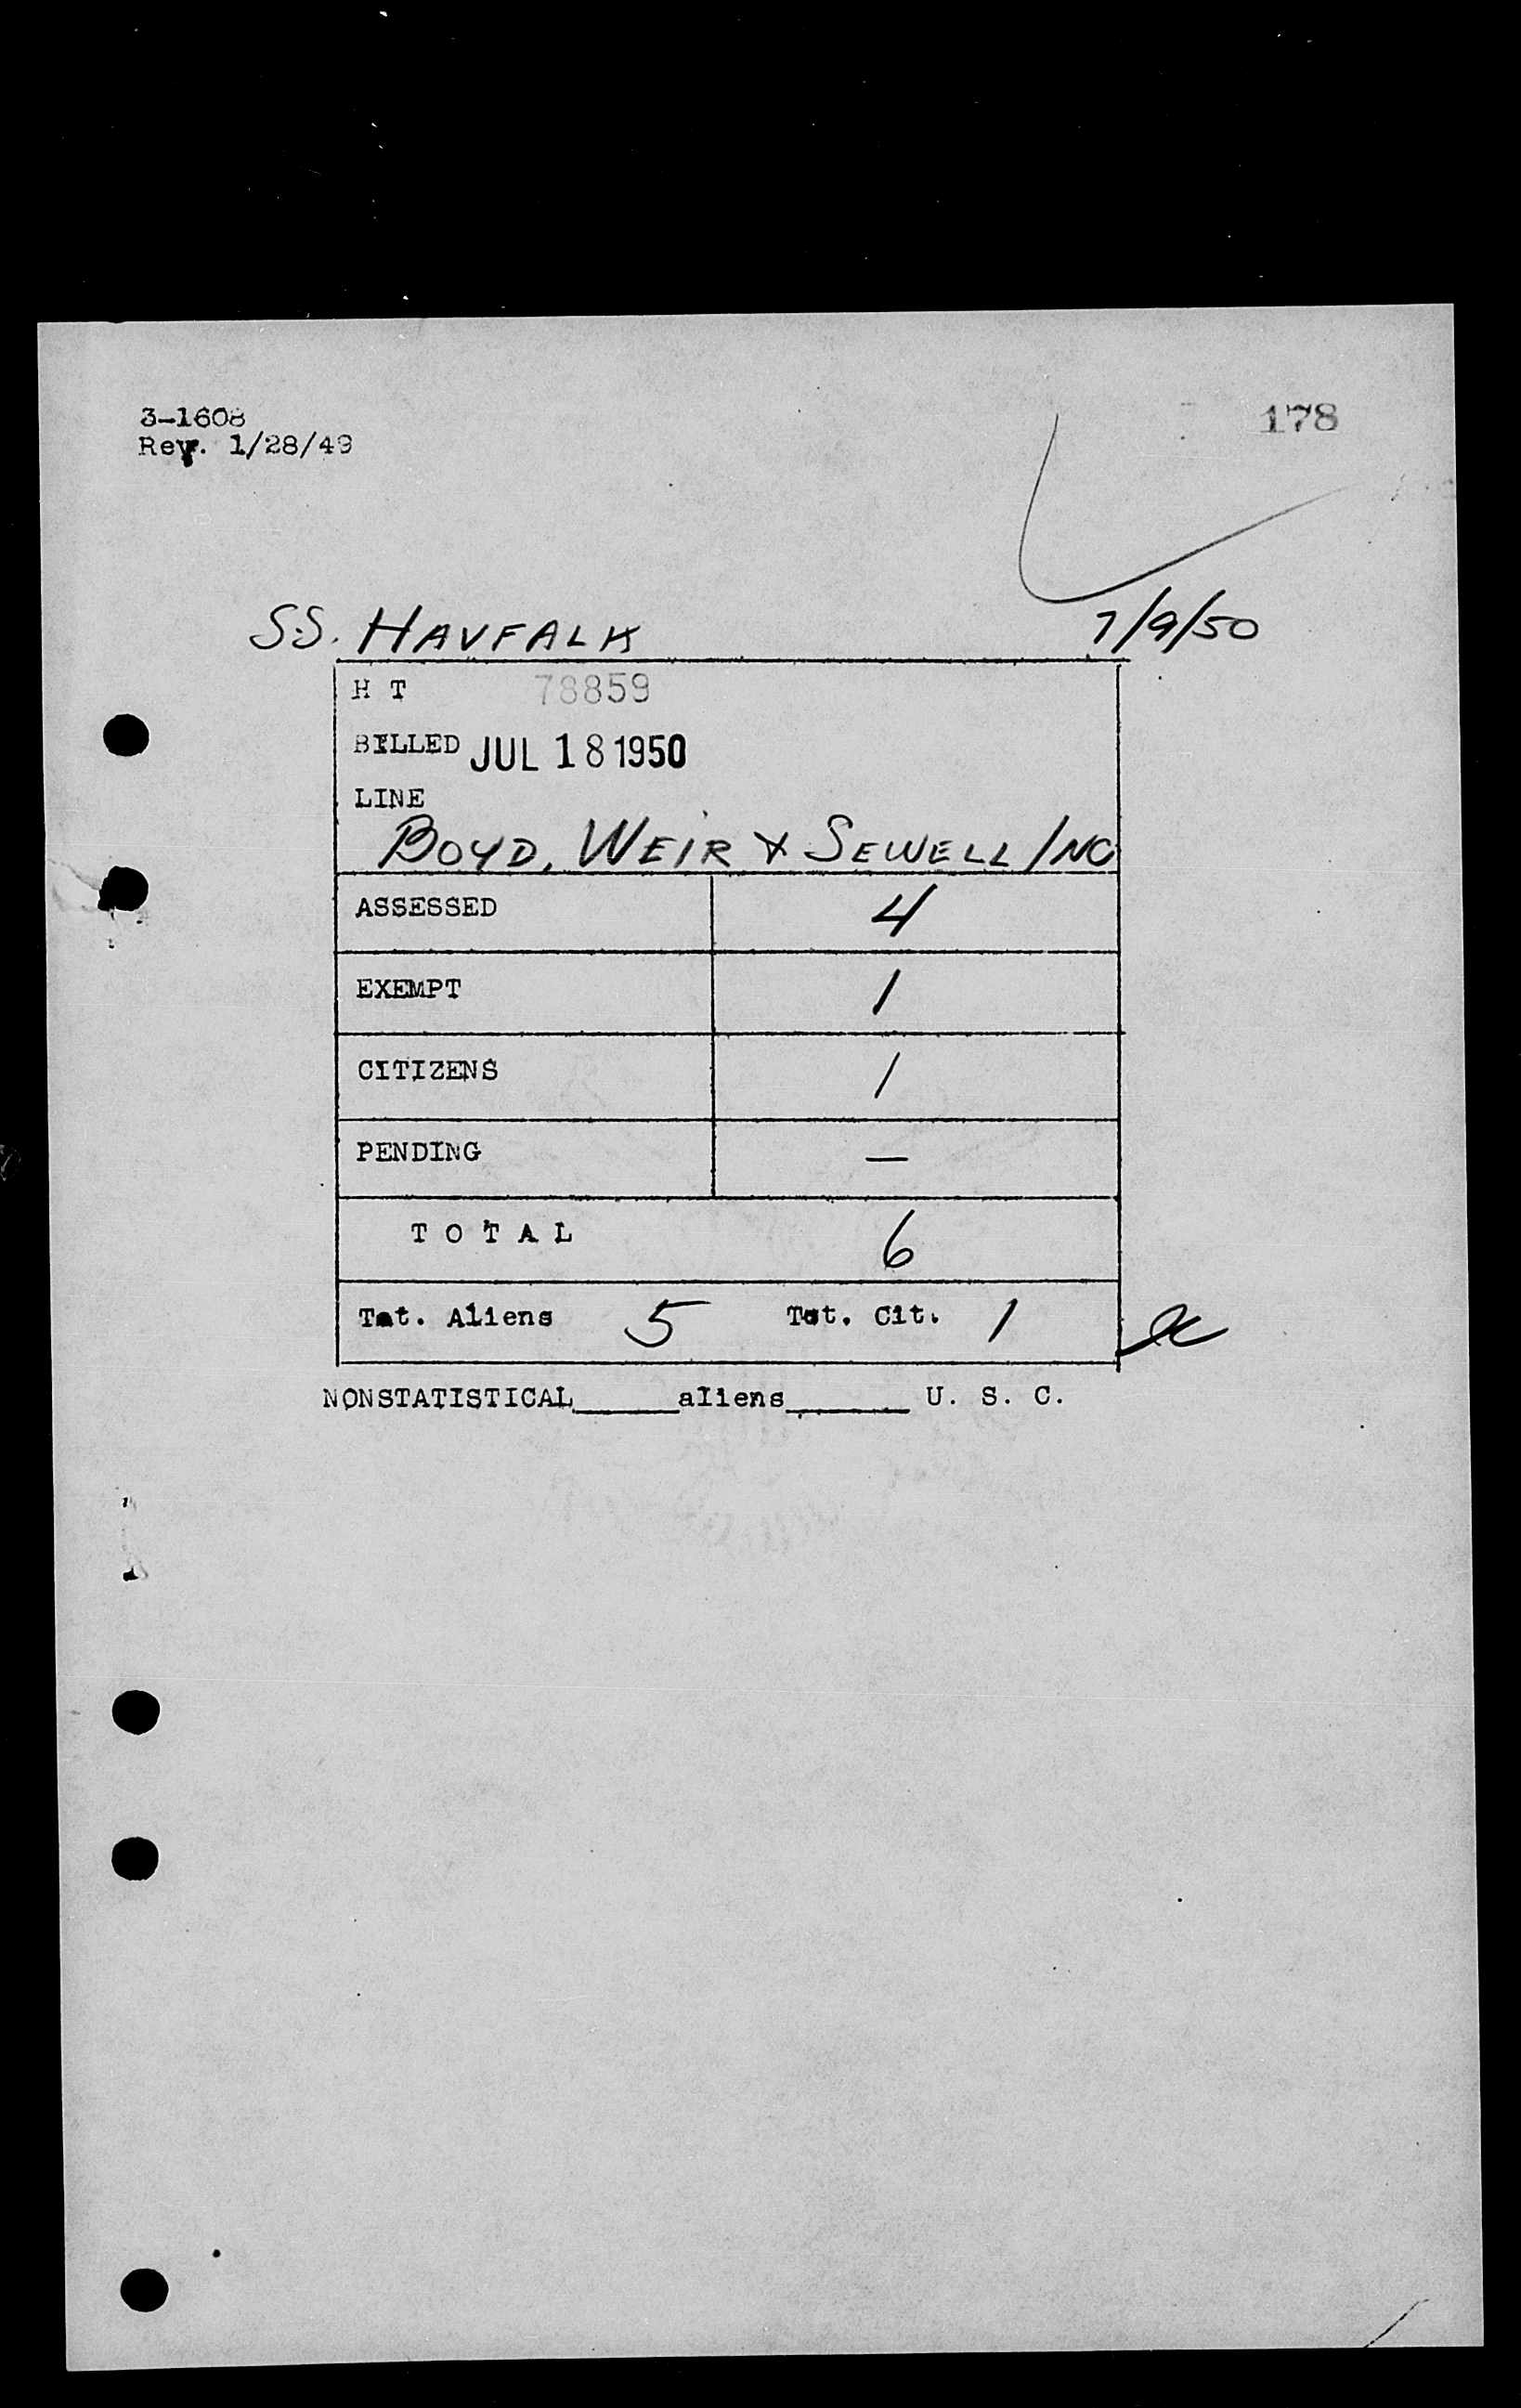 3-1608
Rev. 1/28/49
178
S.S. HAVFALK 7/9/50
H T 78859
BILLED JUL 18 1950
LINE
BOYD, WEIR & SEWELL INC
ASSESSED 4
EXEMPT 1
CITIZENS 1
PENDING —
T O T A L 6
Tot. Aliens 5 Tot. Cit. 1
NONSTATISTICAL______aliens_______ U. S. C.